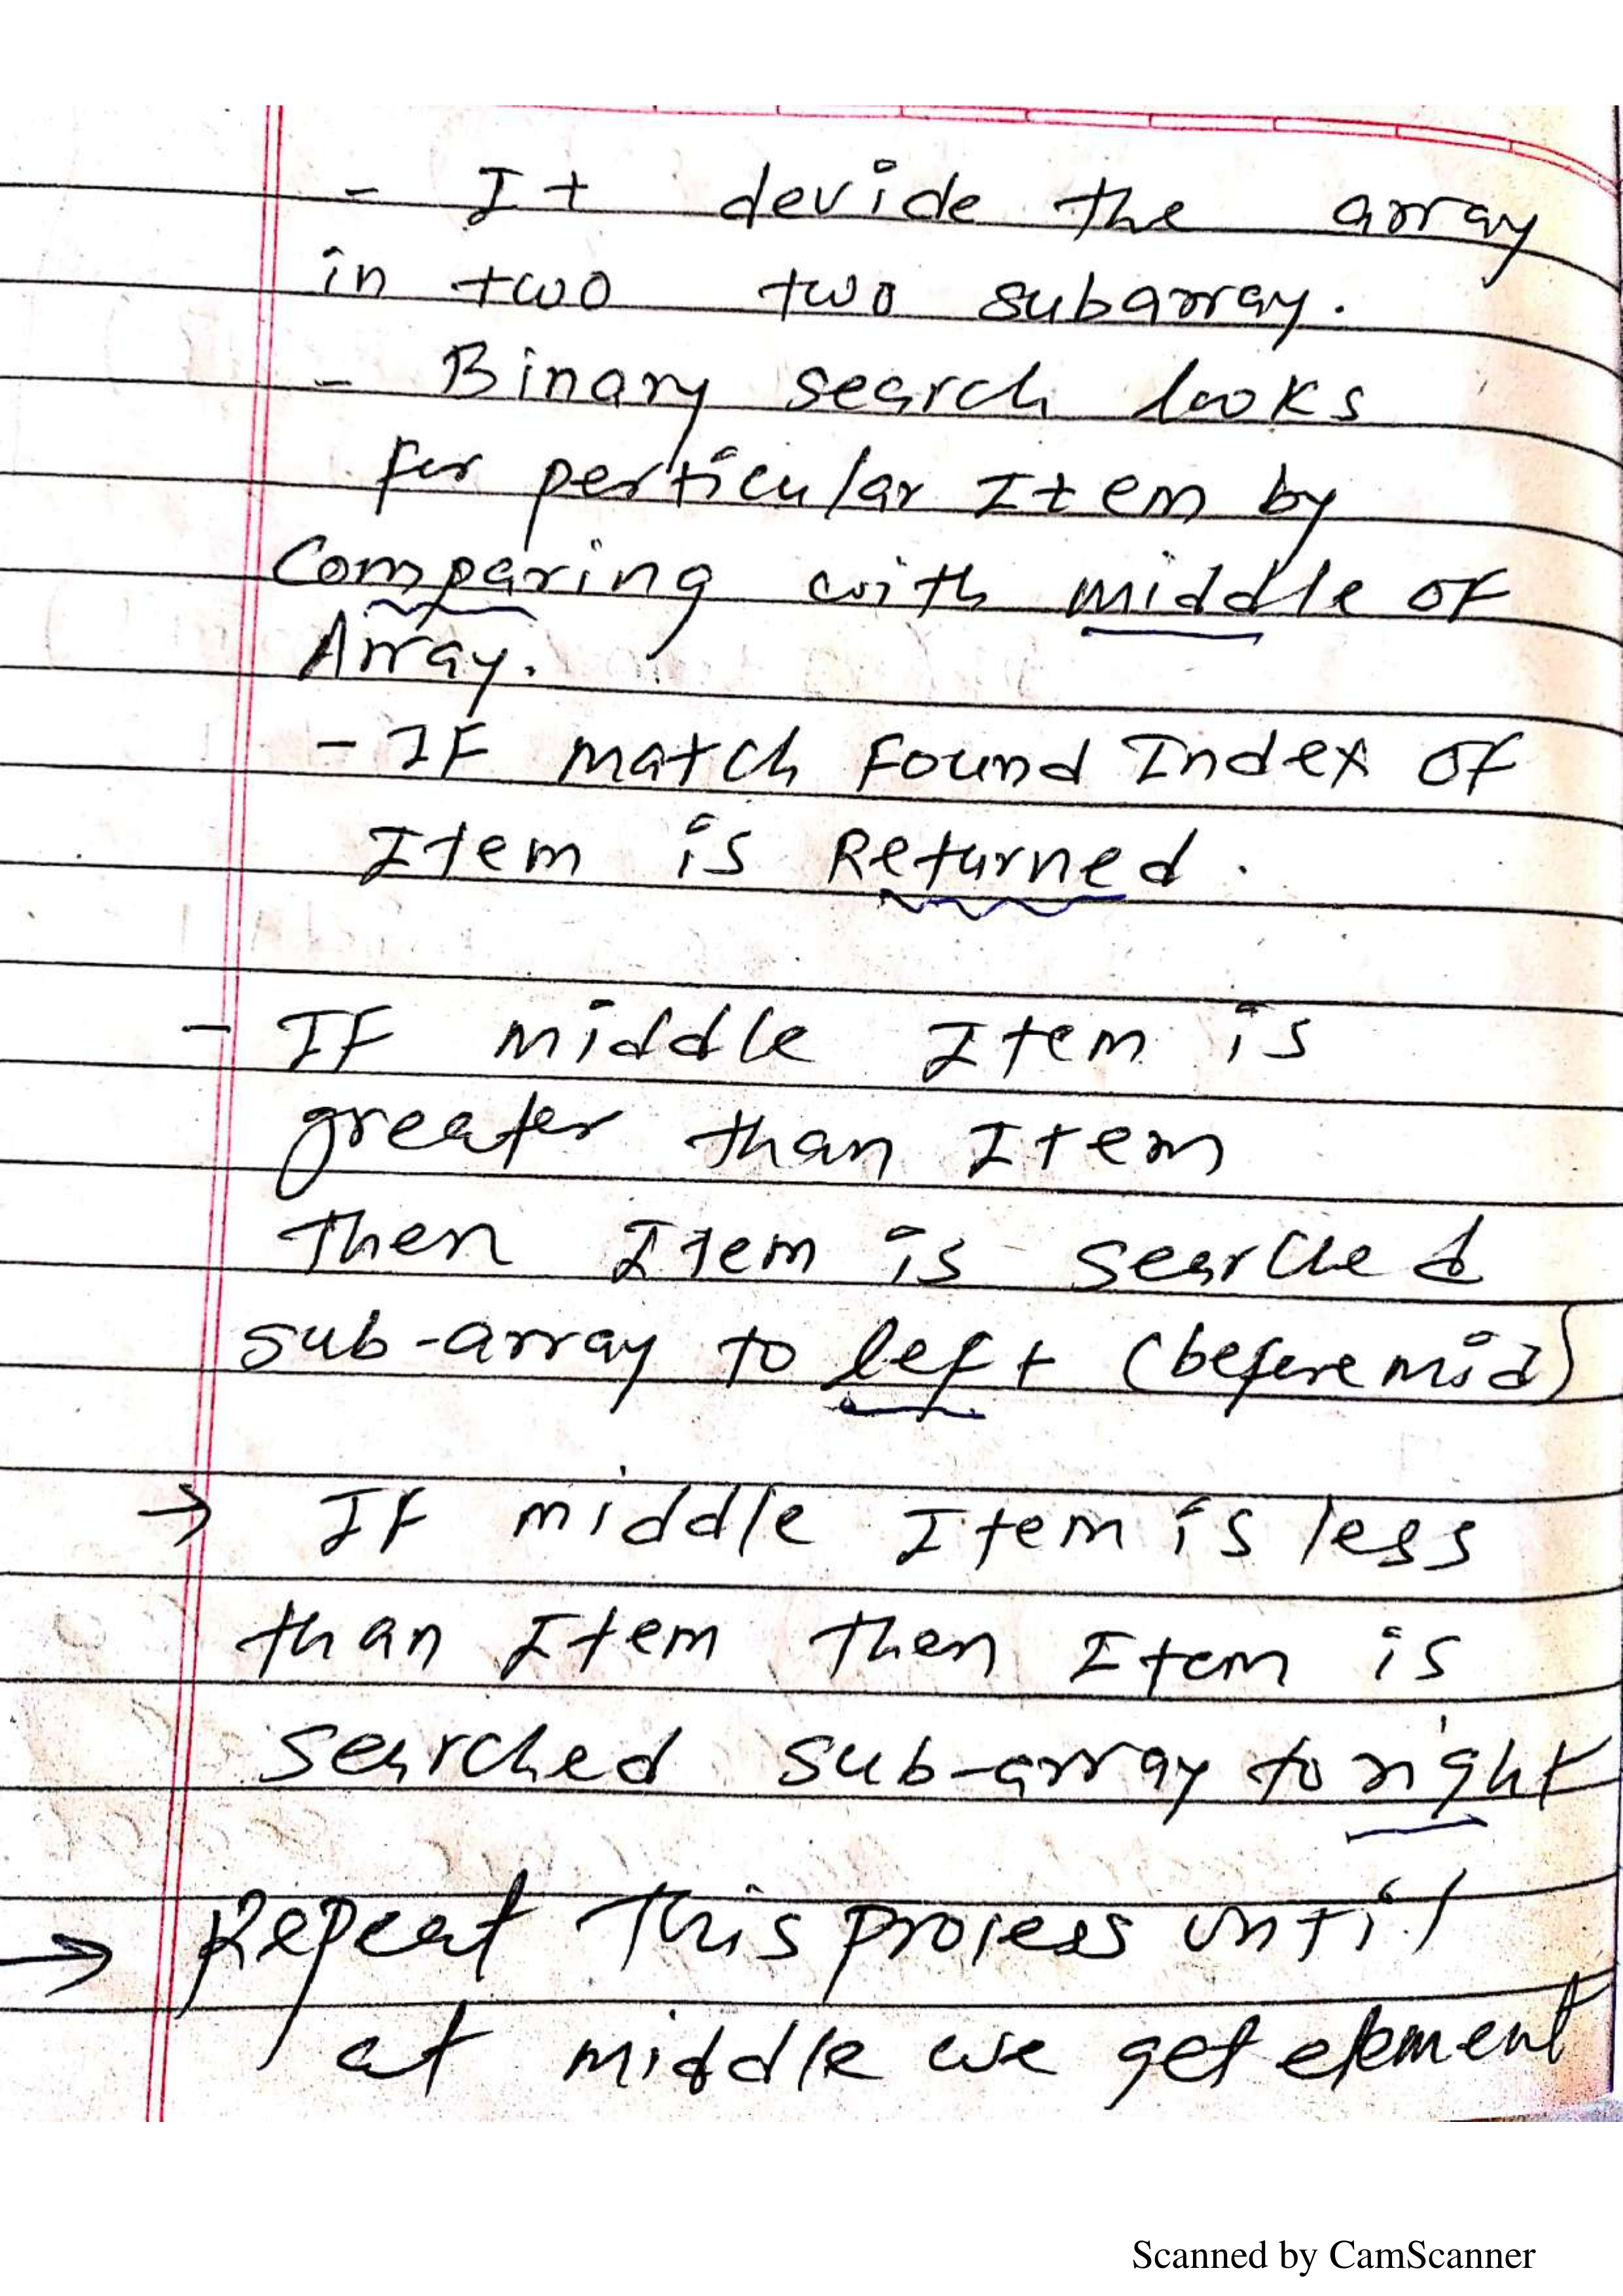 - It devide the array
in two two subarray.
- Binary search looks
for perticular Item by
Comparing with middle of
Array.
- IF match Found Index of
Item is Returned.
- IF middle Item is
greater than Item
Then Item is searched
sub-array to left (before mid)
→ IF middle Item is less
than Item Then Item is
searched sub-array to right
→ Repeat This process until
at middle we get element
Scanned by CamScanner